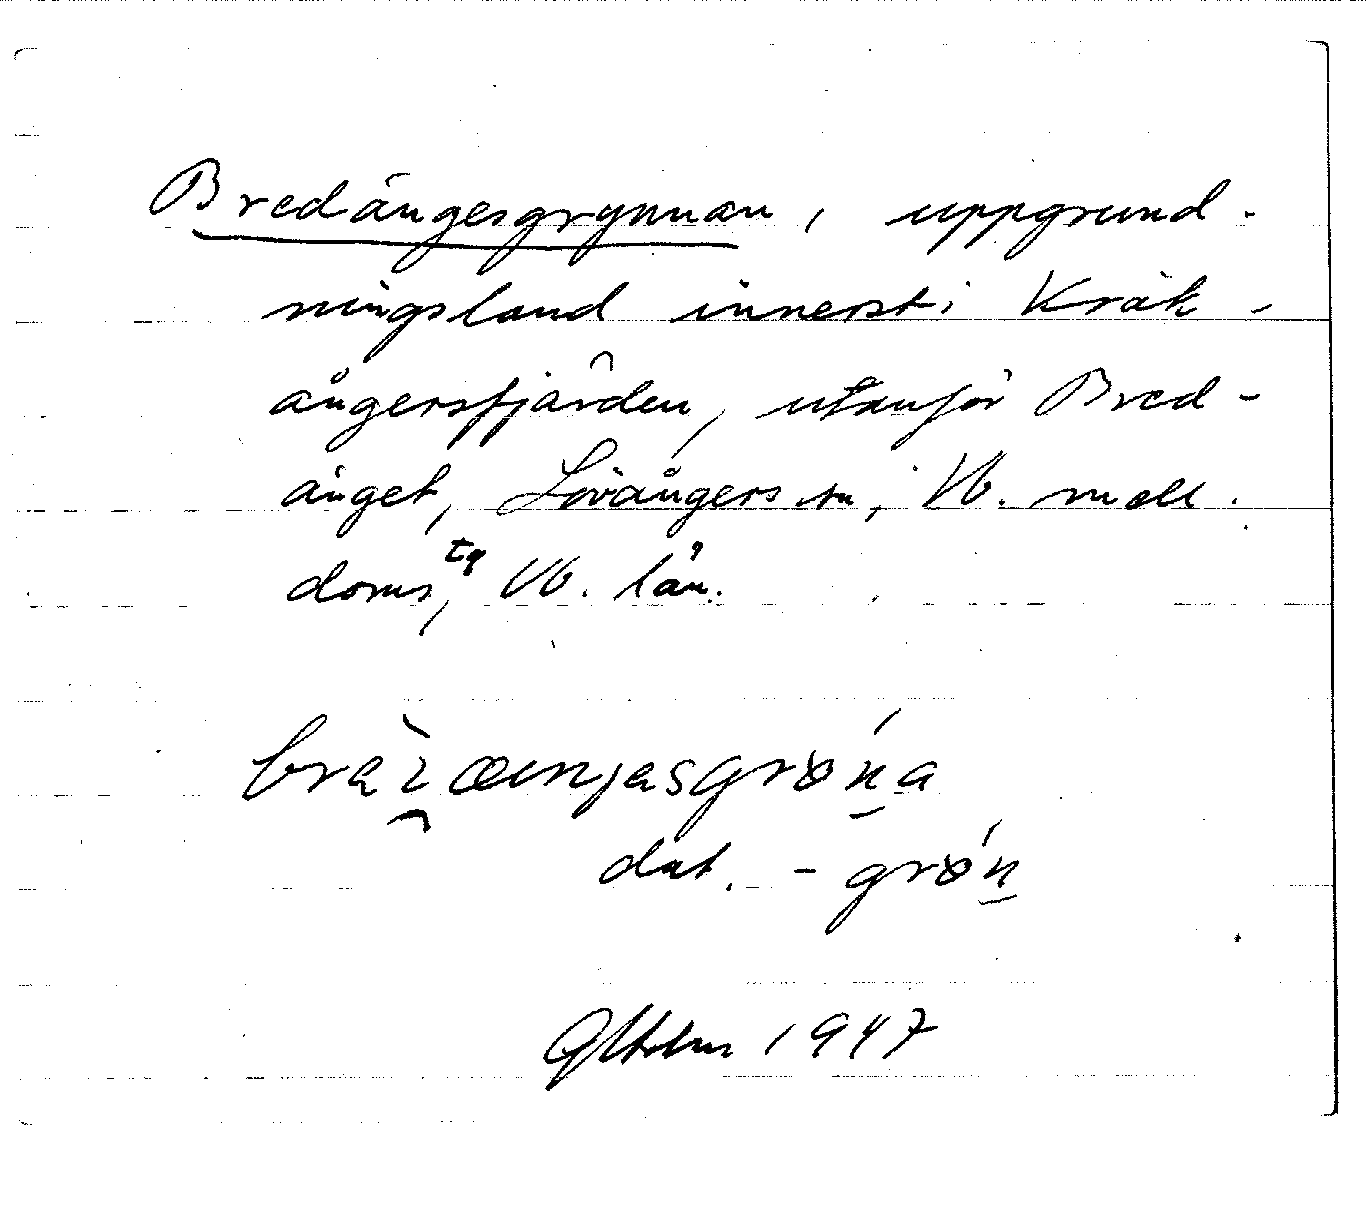 Bredängesgrynnan, uppgrund-
ningsland innerst i Kråk-
ångersfjärden, utanför Bred-
änget, Lövångers sn, Vb. mell.
doms tg, Vb. län.
dat. -grøn
1947